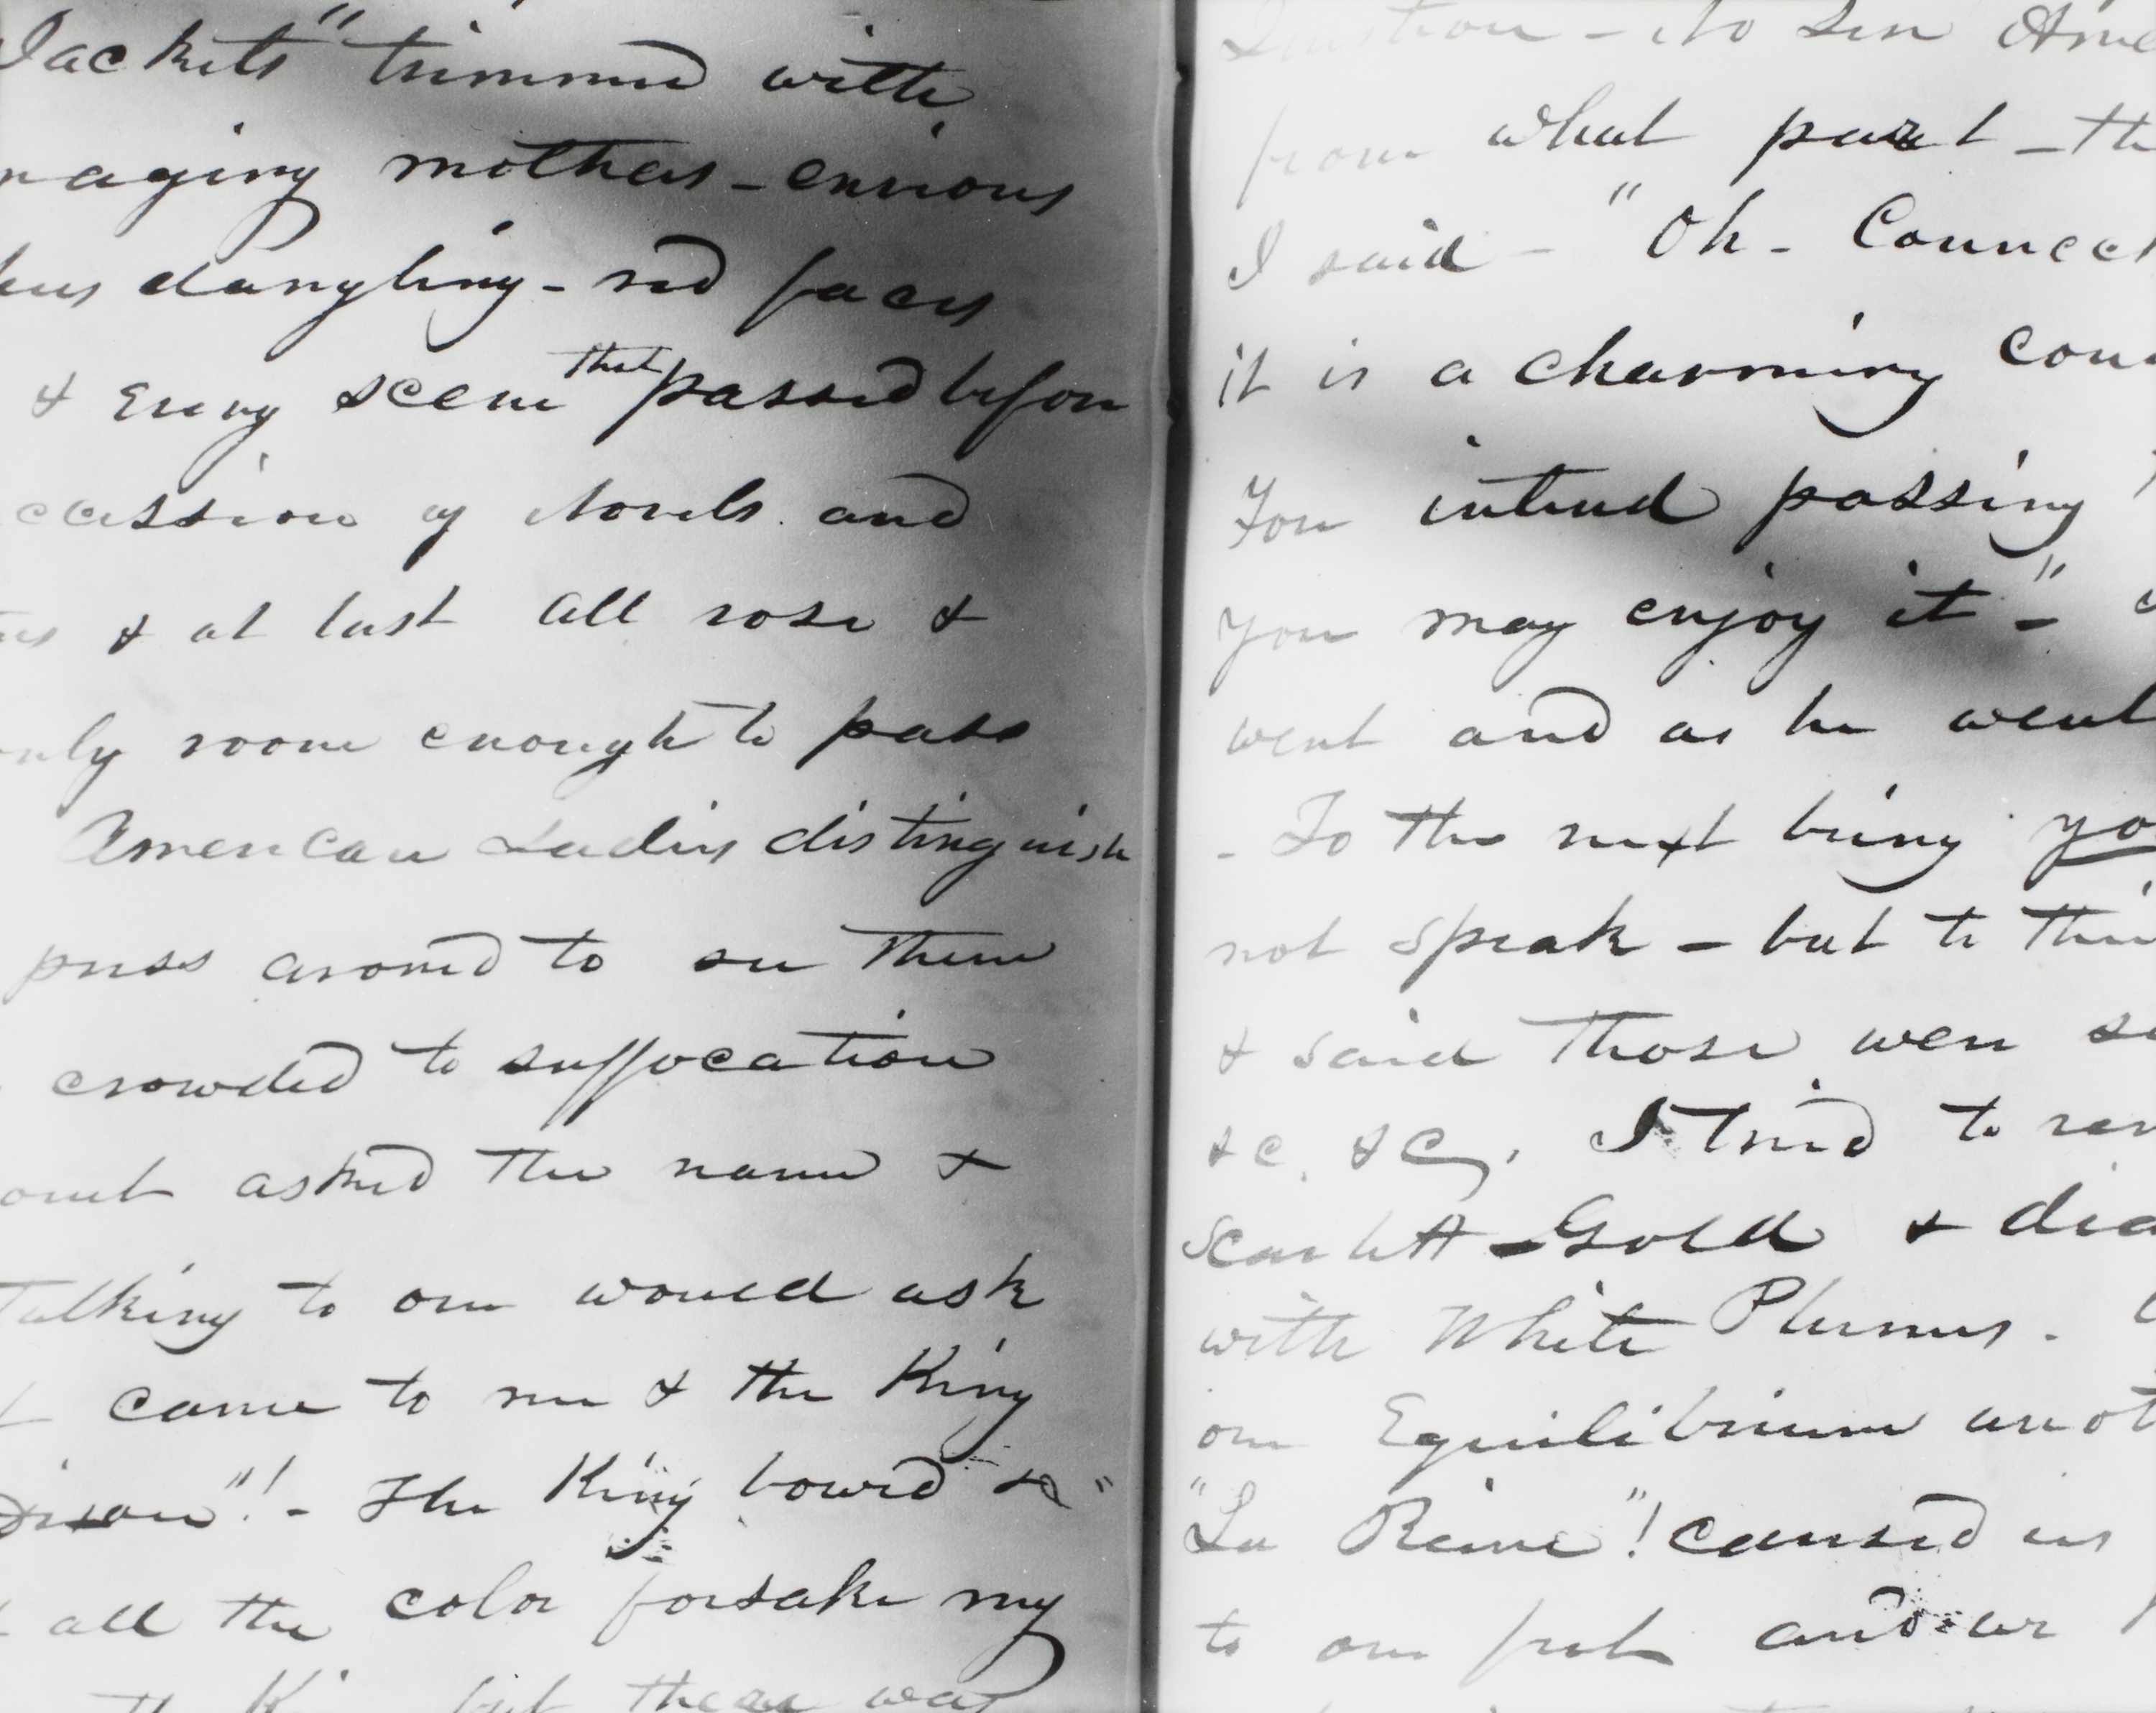 Jackets" trimmed with
naging mothers - envious
dangling - red faces
& Every scene that passed before
cession of Novels and
& at last all rose &
nly room enough to pass
American Ladies distinguish
press around to see them
crowded to suffocation
asked the name &
Talking to one would ask
came to me & the King
"! - The King bowed &
all the color forsake my
but there was
Question - No Sir Ame
from what part - th
I said - "Oh - Connect
it is a charming cou
You intend passing
you may enjoy it" -
went and as he went
- To the next being yo
not speak - but to thin
& said those were so
&c. &c, I tried to
Scarlett Gold & dia
with White Plumes.
our Equilibrium anot
"La Reine"! caused us
to our feet and we